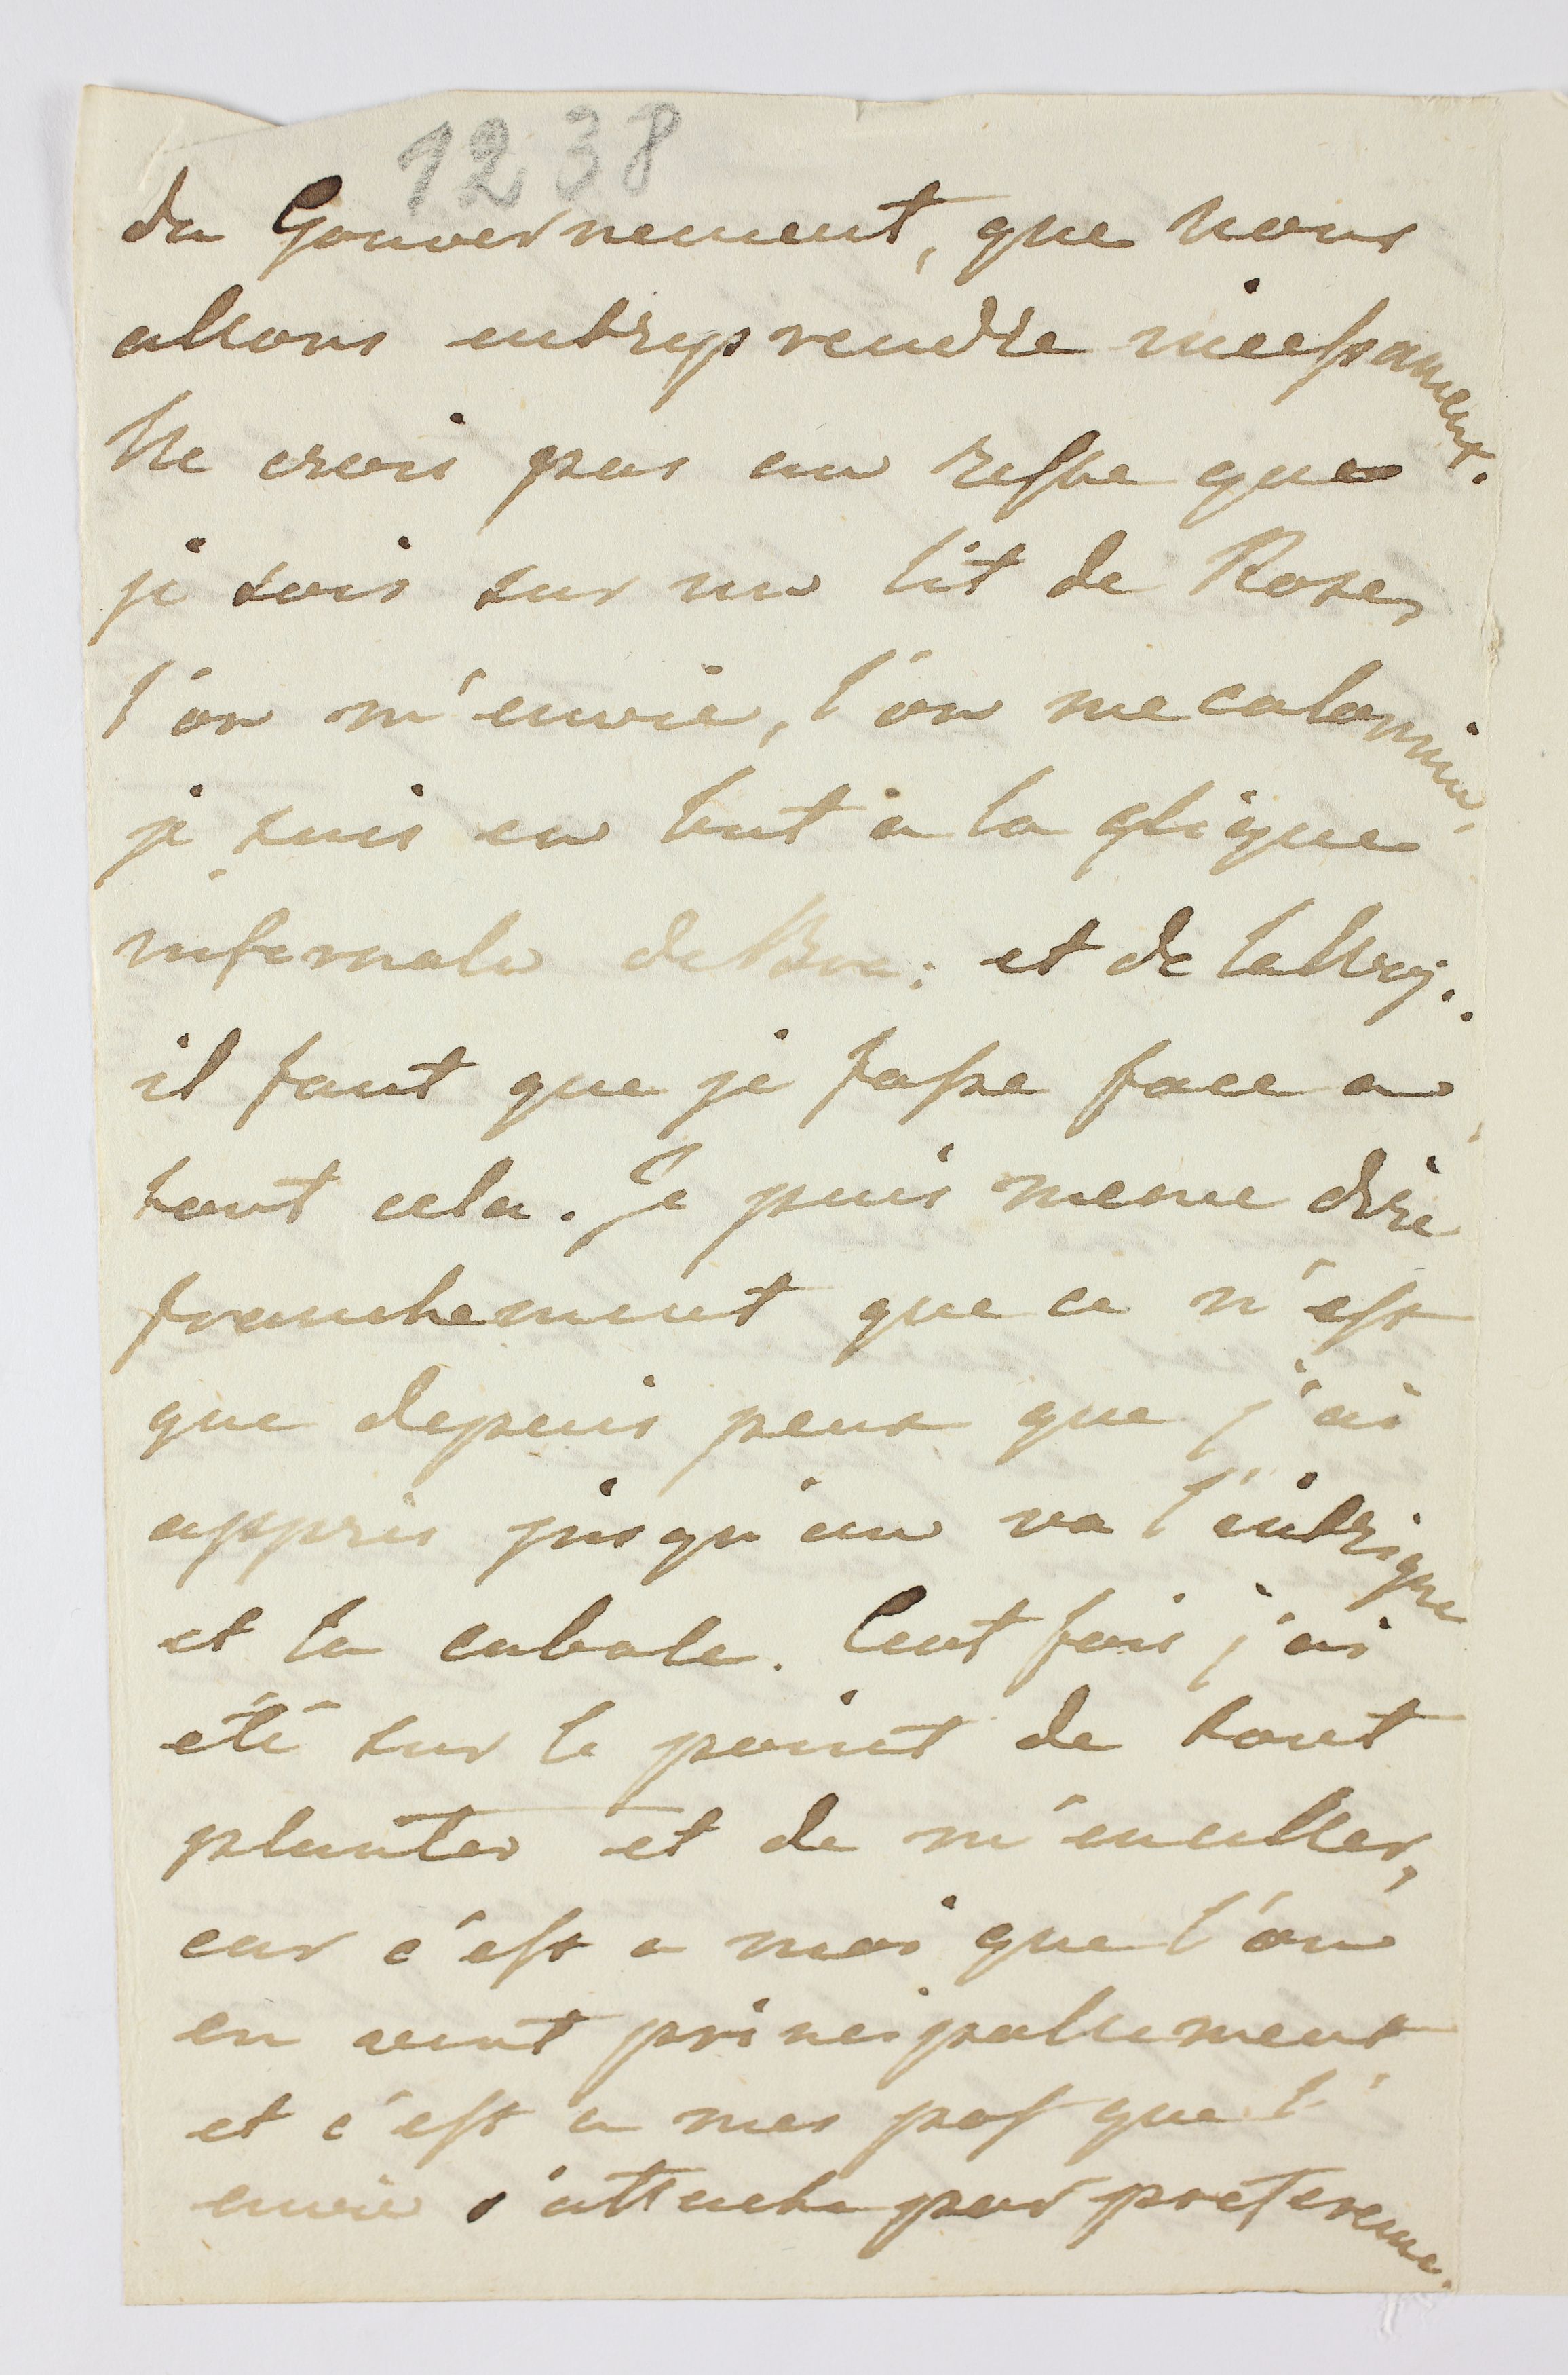 1238
du Gouvernement, que nous
allons entreprendre incessament.
Ne crois pas au reste que
je sois sur un lit de Roses
l'on m'envie, l'on me calomnie,
je suis en but a la qlique
infernale de Bra: et de
il faut que je fasse face a
tout cela. Je puis meme dire
franchement que ce n'est
que depuis peux que j'ai
appris jusqu'au va l'intrigue
et la cabale. Cent fois j'ai
été sur le point de tout
planter et de m'enaller,
car c'est a moi que l'on
en veut principallement
et c'est a mes pas que l'
envie s'attache par preference.